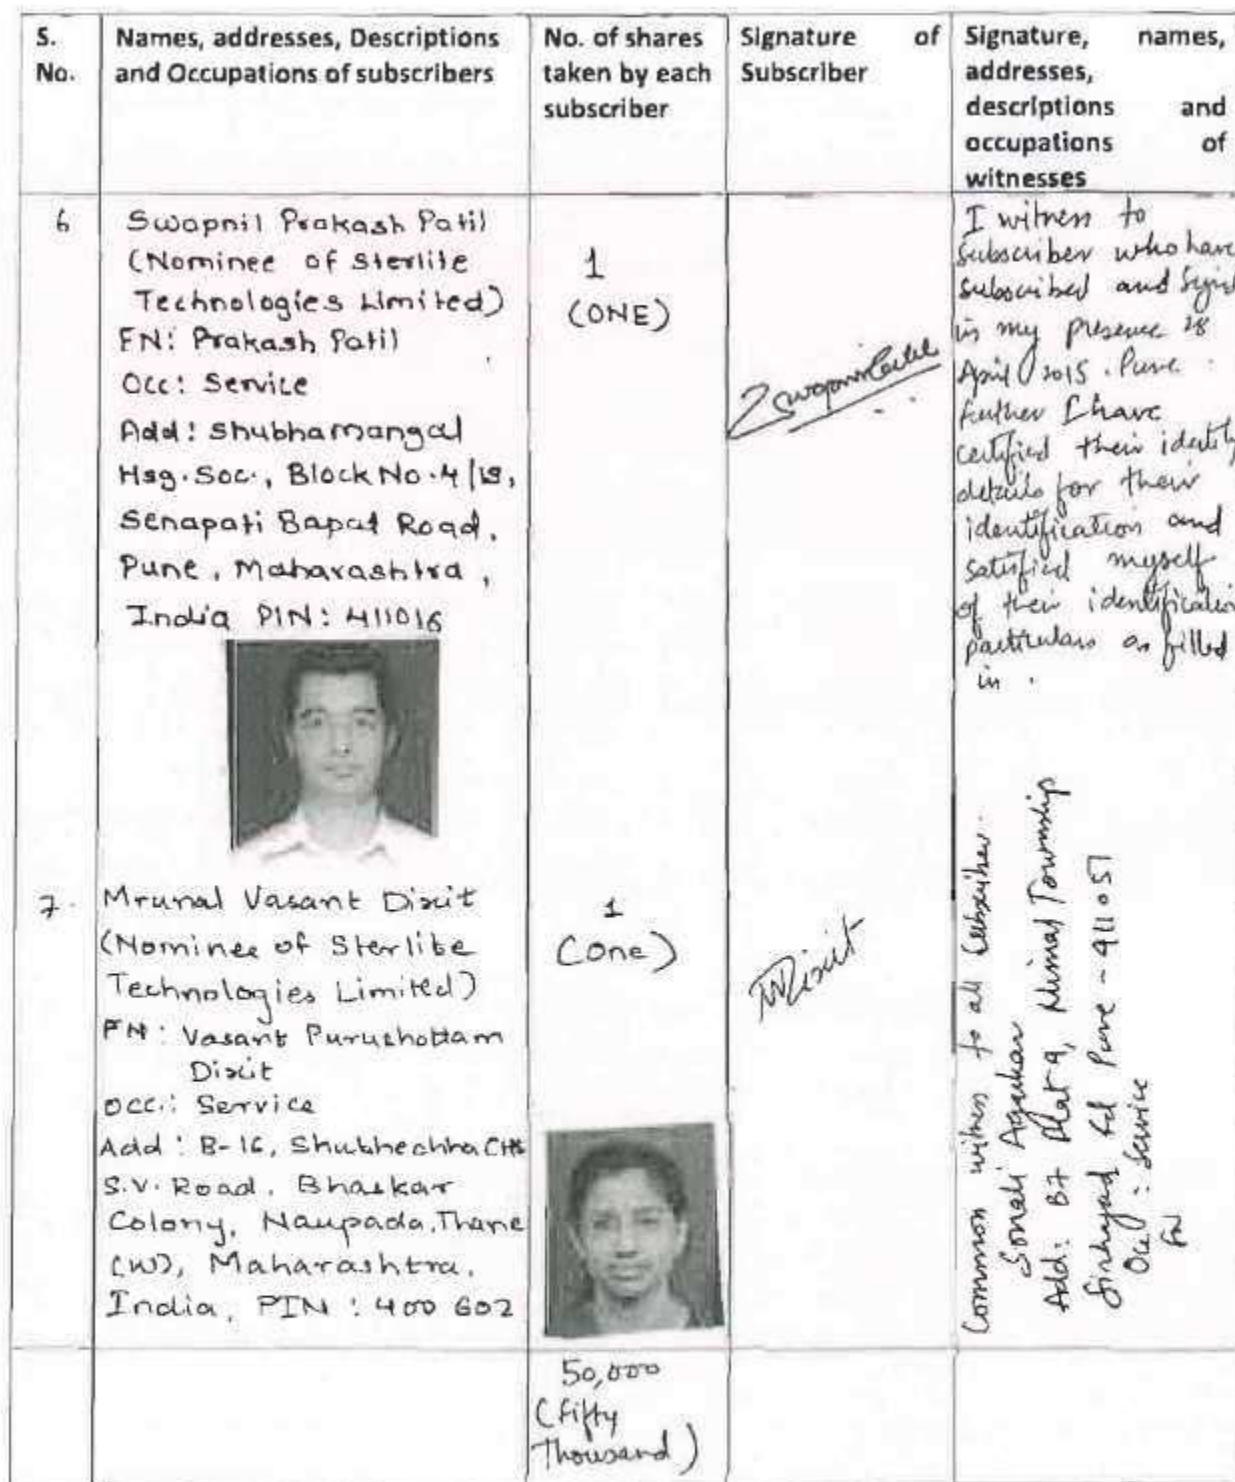 S. No.
Names, addresses, Descriptions
and Occupations of subscribers
No. of shares
taken by each
subscriber
Signature of
Subscriber
Signature, names,
addresses,
descriptions and
occupations of
witnesses
6
Swapnil Prakash Patil
(Nominee of Sterlite
Technologies Limited)
FN: Prakash Patil
Occ: Service
Add: Shubhamangal
Hsg. Soc., Block No. 4/
Senapati Bapat Road,
Pune, Maharashtra,
India PIN: 411016
1
(ONE)
I witness to
subscriber who have
subscribed and
in my presence 28
April 2015. Pune.
Further I have
certified their
details for their
identification and
satisfied myself
of their identification
particulars as filled
in.
7.
Mrunal Vasant Dixit
(Nominee of Sterlite
Technologies Limited)
FN: Vasant Purushottam
Dixit
Occ.: Service
Add: B-16, Shubhechha CHS
S.V. Road, Bhaskar
Colony, Naupada, Thane
(W), Maharashtra,
India, PIN: 400 602
1
(One)
Dixit
Common witness to all subscriber.
Sonali
Add: B7 Flat 9, Township
Rd Pune - 411051
Occ: Service
FN
50,000
(Fifty
Thousand)